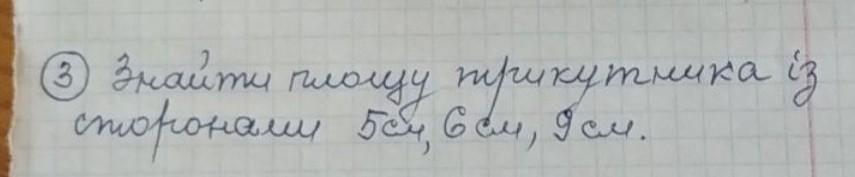 ③ Знайти площу трикутника із
сторонами 5см, 6см, 9см.